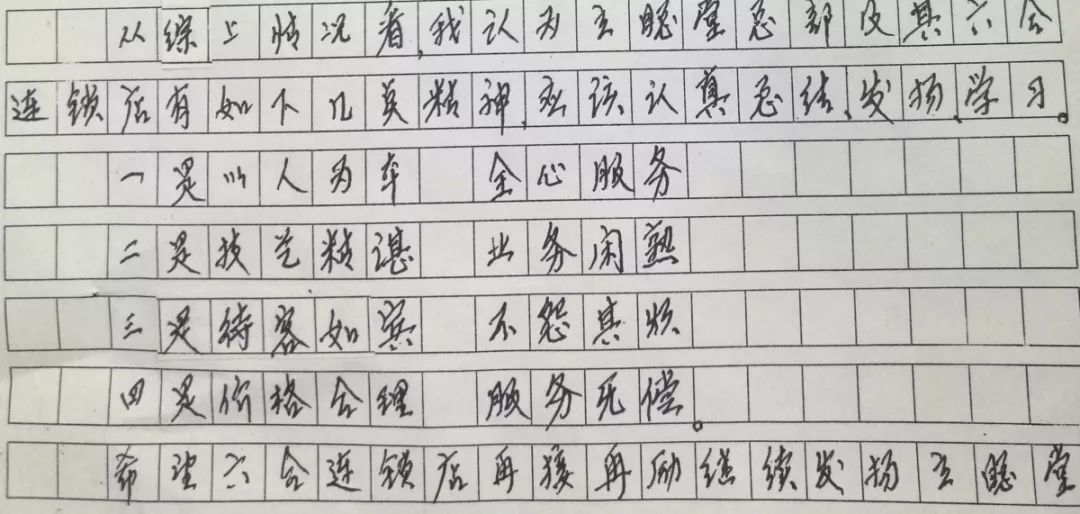 从综上情况看,我认为互聪堂总部及其六合
连锁店有如下几矣精神,应该认真总结、发扬、学习。
一是以人为本 全心服务
二是技艺精湛 业务闲熟
三是待客如宾 不怨其烦
四是价格合理 服务无偿。
希望六合连锁店再接再励继续发扬互聪堂